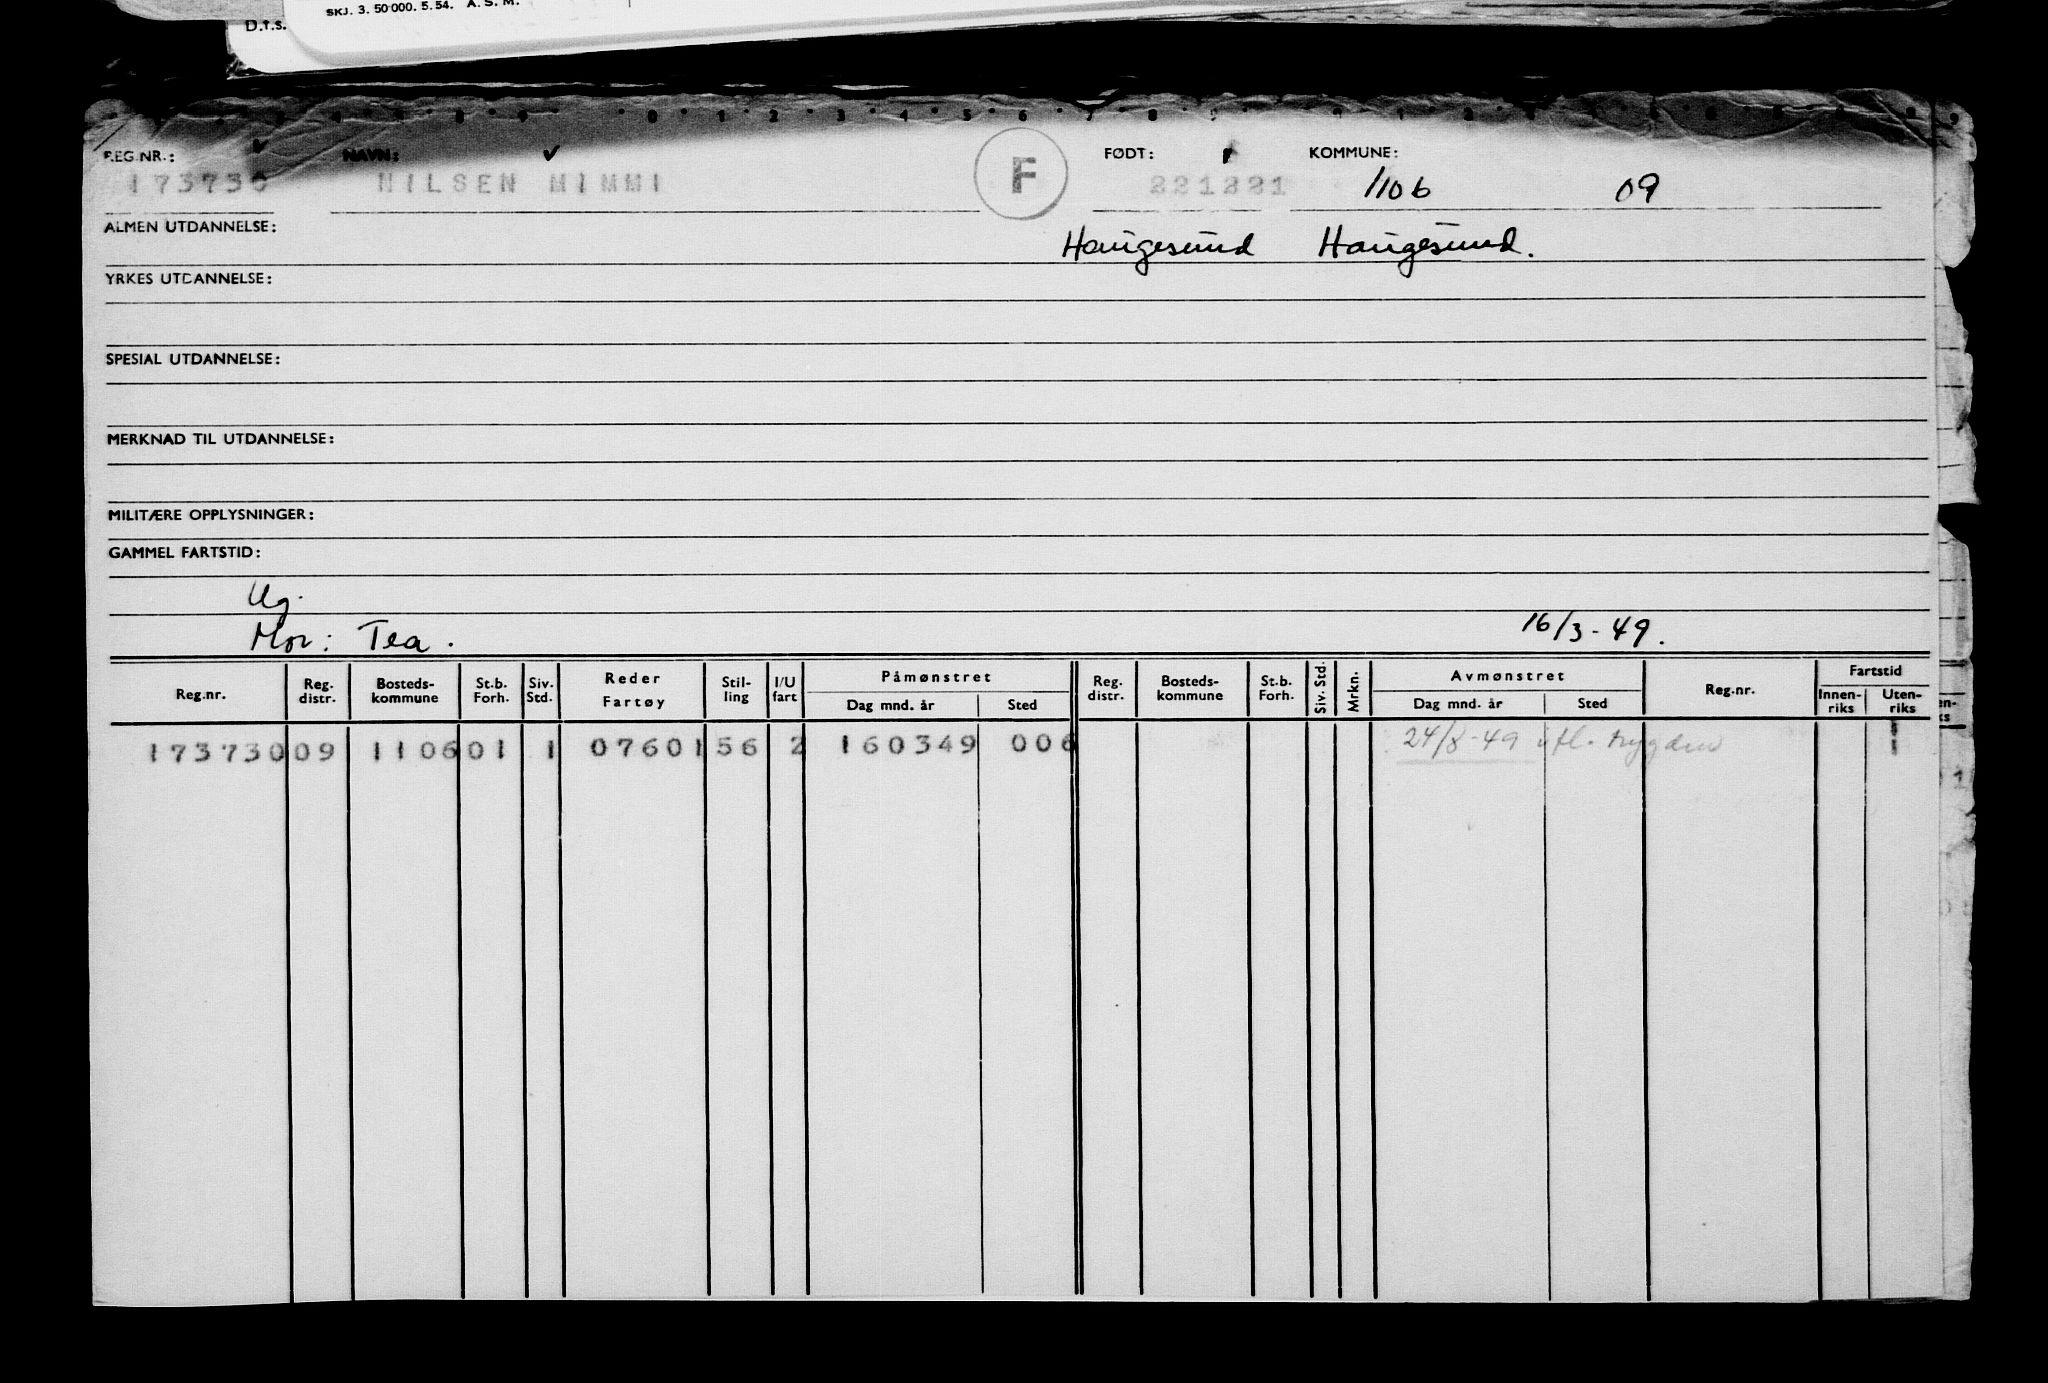 SKJ. 3. 50 000. 5. 54. A. S. M.
D.f.s.
REG.NR.: NAVN: FØDT: KOMMUNE:
173730 NILSEN MIMMI F 221221 1106 09
ALMEN UTDANNELSE: Haugesund Haugesund.
YRKES UTDANNELSE:
SPESIAL UTDANNELSE:
MERKNAD TIL UTDANNELSE:
MILITÆRE OPPLYSNINGER:
GAMMEL FARTSTID:
Ug.
Mor: Tea. 16/3-49.
Reg.nr. Reg. distr. Bosteds-kommune St.b. Forh. Siv. Std. Reder Fartøy Stil-ling I/U fart Påmønstret Dag mnd. år Sted Reg. distr. Bosteds-kommune St.b. Forh. Siv. Std. Mrkn. Avmønstret Dag mnd. år Sted Reg.nr. Fartstid Innen-riks Uten-riks
173730 09 1106 01 1 07601 56 2 160349 006 24/8-49 trygden